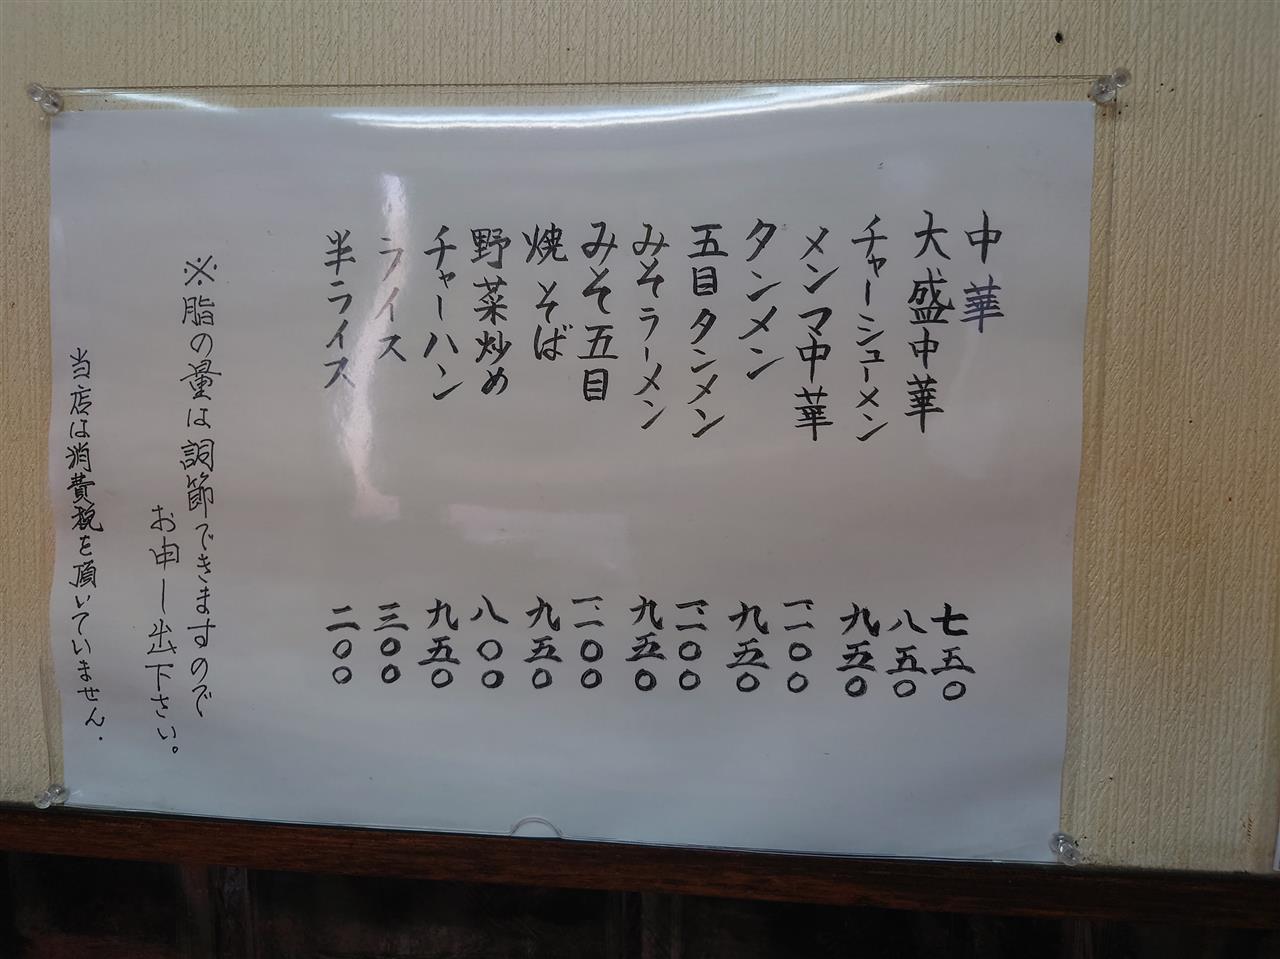 中華 七五〇
大盛中華 八五〇
チャーシューメン 九五〇
メンマ中華 一、一〇〇
タンメン 九五〇
五目タンメン 一、一〇〇
みそラーメン 九五〇
みそ五目 一、一〇〇
焼そば 九五〇
野菜炒め 八〇〇
チャーハン 九五〇
ライス 三〇〇
半ライス 二〇〇
※脂の量は調節できますので
お申し出下さい。
当店は消費税を頂いていません.